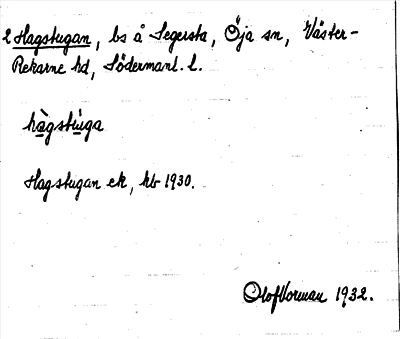 2 Hagstugan, bs å Segersta, Öja sn, Väster-
Rekarne hd, Södermanl. l.
hàgstùga
Hagstugan ek, kb 1930.
Olof Vorman 1932.